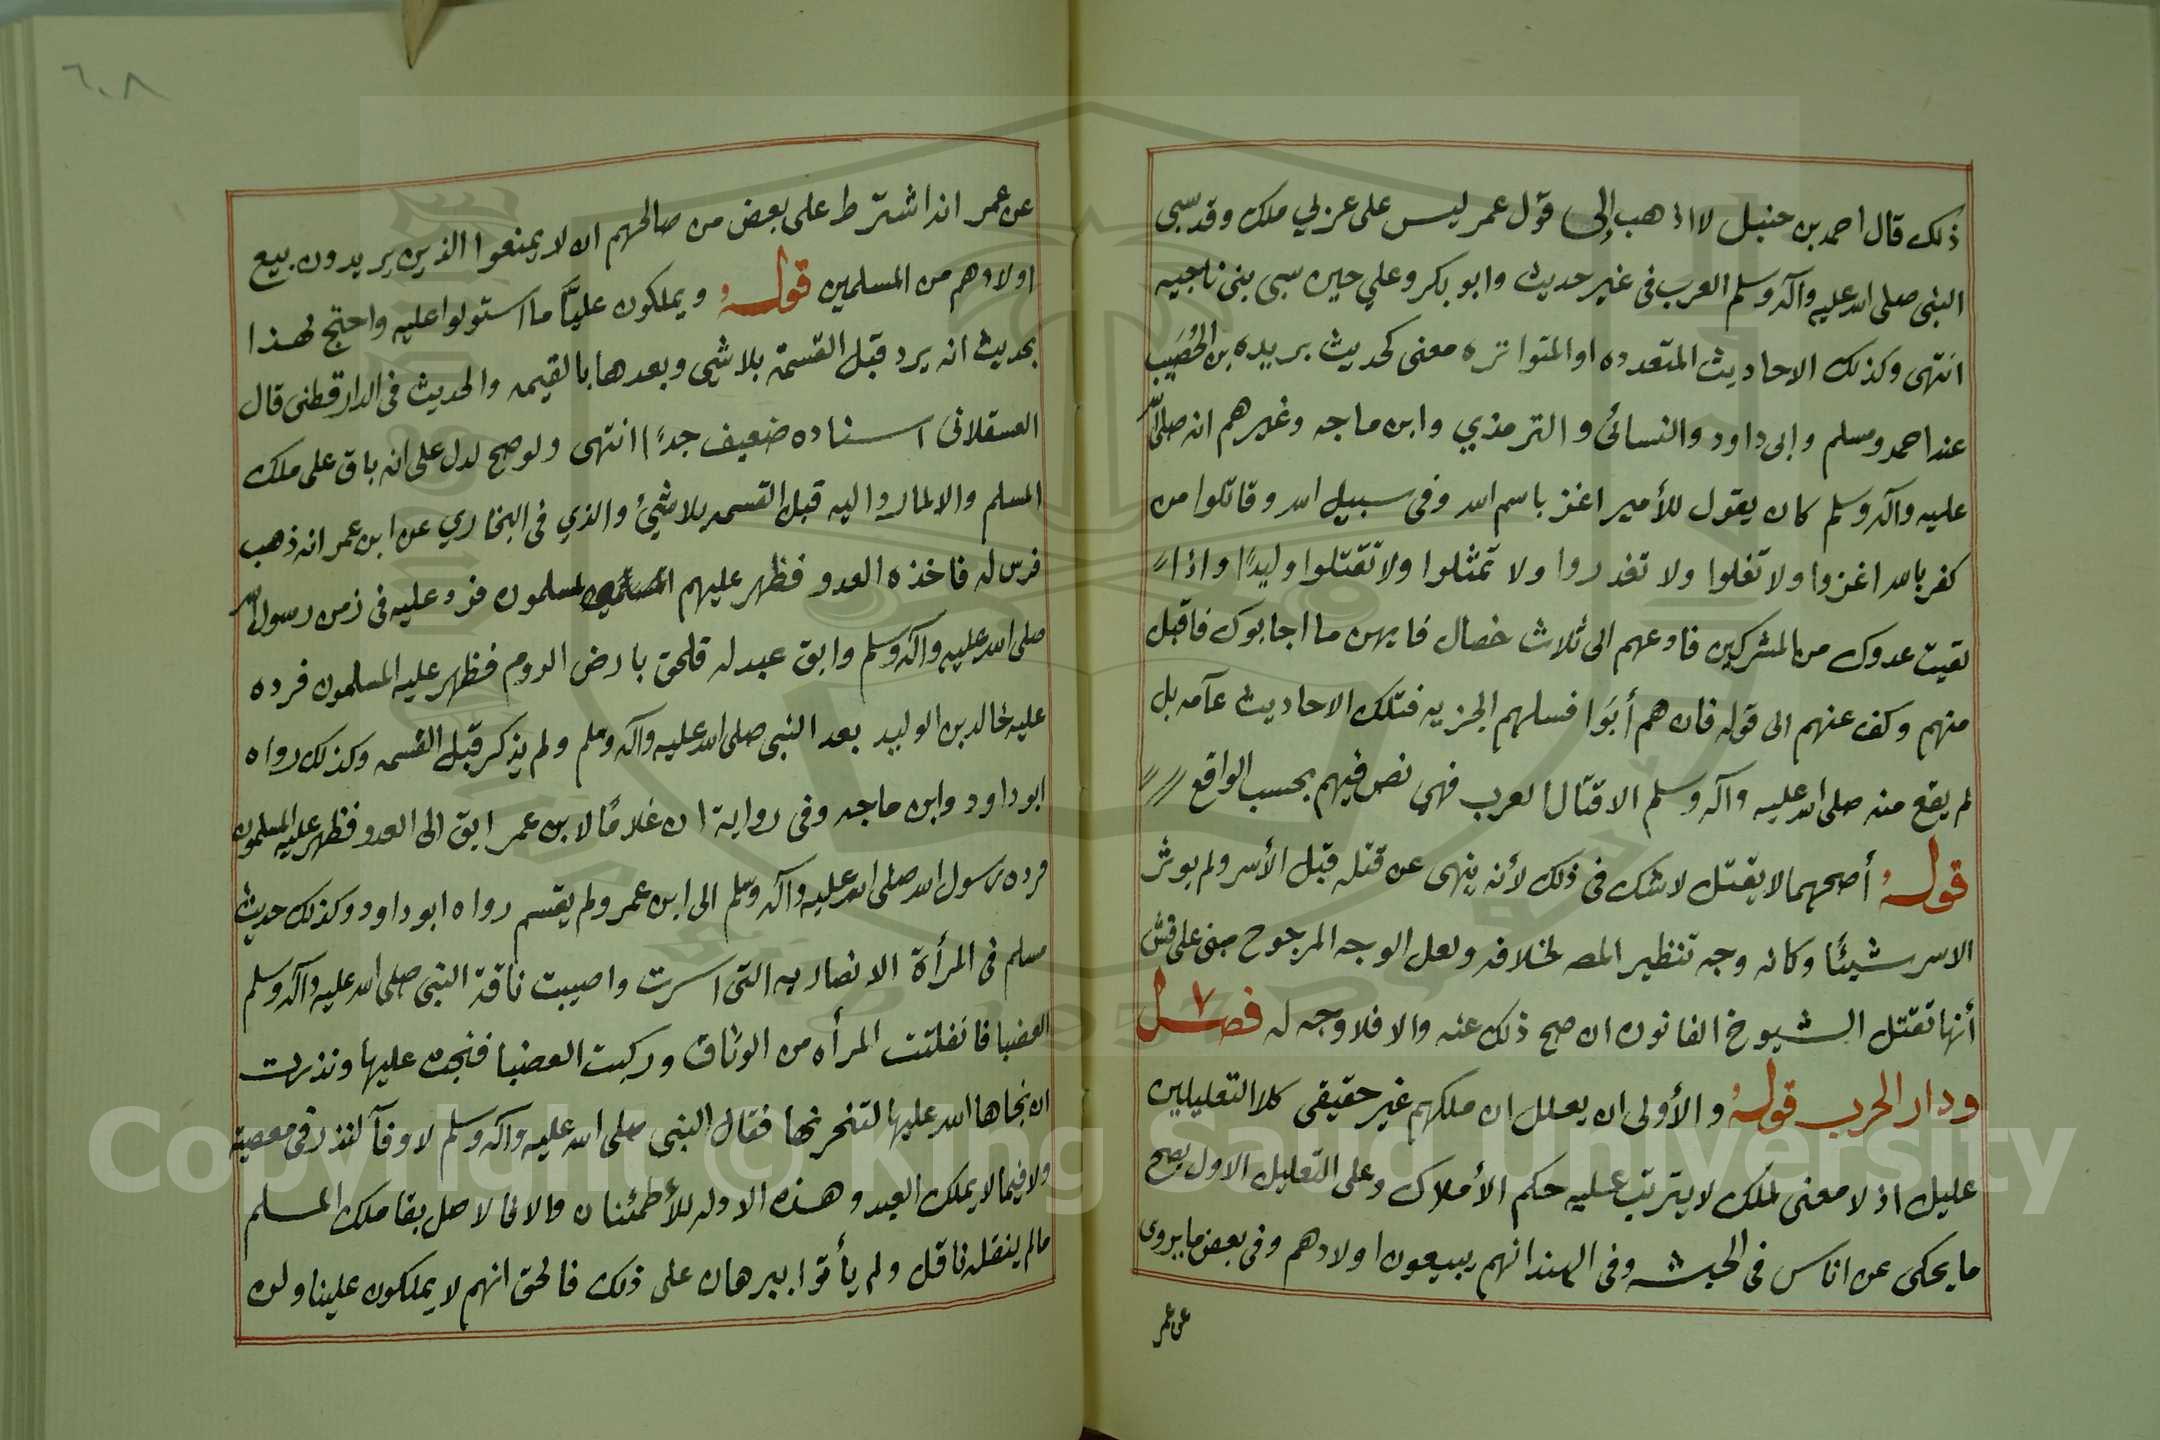 ذلك قال احمد بن حنبل لا اذهب إلى قول عمر ليس على عربي ملك وقد سبى
النبى صلى الله عليه وآله وسلم العرب فى غير حديث وابو بكر وعلي حين سبى بنى ناجيه
انتهى وكذلك الاحاديث المتعدده او المتواتره معنى كحديث بريده بن الحُصَيب
عند احمد ومسلم وابى داود والنسائى والترمذي وابن ماجه وغيرهم انه صلى الله
عليه وآله وسلم كان يقول للأمير اغز باسم الله وفى سبيل الله وقاتلوا من
كفر بالله اغزوا ولا تغلوا ولا تغدروا ولا تمثلوا ولا تقتلوا وليدًا واذا
لقيت عدوك من المشركين فادعهم الى ثلاث خصال فايهن ما اجابوك فاقبل
منهم وكف عنهم الى قوله فان هم أبَوا فسلهم الجزيه فتلك الاحاديث عآمه بل
لم يقع منه صلى الله عليه وآله وسلم الا قتال العرب فهي نص فيهم بحسب الواقع
قوله أصحهما لا يقتل لا شك فى ذلك لأنه ينهى عن قتله قبل الأسر ولم يوثر
الاسر شيئًا وكانه وجه تنظير المصـ لخلافه ولعل الوجه المرجوح مبنى على
أنها تقتل الشيوخ الفانون ان صح ذلك عنه والا فلا وجه له فصل
ودار الحرب قوله والأولى ان يعلل ان ملكهم غير حقيقى كلا التعليلين
عليل اذ لا معنى لملك لا يترتب عليه حكم الأملاك وعلى التعليل الاول يصح
ما يحكى عن اناس فى الحبشه وفى الهند انهم يبيعون اولادهم وفى بعض ما يروى
عن عمر
٦٠٨
عن عمر انه اشترط على بعض من صالحهم ان لا يمنعوا الذين يريدون بيع
اولادهم من المسلمين قوله ويملكون علينا ما استولوا عليه واحتج لهذا
بحديث انه يرد قبل القسمة بلا شيى وبعدها بالقيمه والحديث فى الدارقطنى قال
العسقلانى اسناده ضعيف جدًا انتهى ولو صح لدل على انه باق على ملك
المسلم والا لما ردا اليه قبل القسمه بلا شيئ والذي فى البخاري عن ابن عمر انه ذهب
فرس له فاخذه العدو فظهر عليهم المسلمون فرد عليه فى زمن رسول الله
صلى الله عليه وآله وسلم وابق عبد له فلحق بارض الروم فظهر عليه المسلمون فرده
عليه خالد بن الوليد بعد النبى صلى الله عليه وآله وسلم ولم يذكر قبل القسمه وكذلك رواه
ابو داود وابن ماجه وفى رواية ان غلامًا لابن عمر ابق الى العدو فظهر عليه المسلمون
فرده رسول الله صلى الله عليه وآله وسلم الى ابن عمر ولم يقسم رواه ابو داود وكذلك حديث
مسلم فى المرأة الانصاريه التى اسرت واصيبت ناقة النبى صلى الله عليه وآله وسلم
العضبا فانفلتت المرأه من الوثاق وركبت العضبا فنجت عليها ونذرت
ان نجاها الله عليها لتنحرنها فقال النبى صلى الله عليه وآله وسلم لا وفآ لنذر فى معصية
ولا فيما لا يملك العبد وهذه الادله للأطمئنان والا فالاصل بقا ملك المسلم
ما لم ينقله ناقل ولم يأتوا ببرهان على ذلك فالحق انهم لا يملكون علينا ولن
Copyright © King Saud University
1957